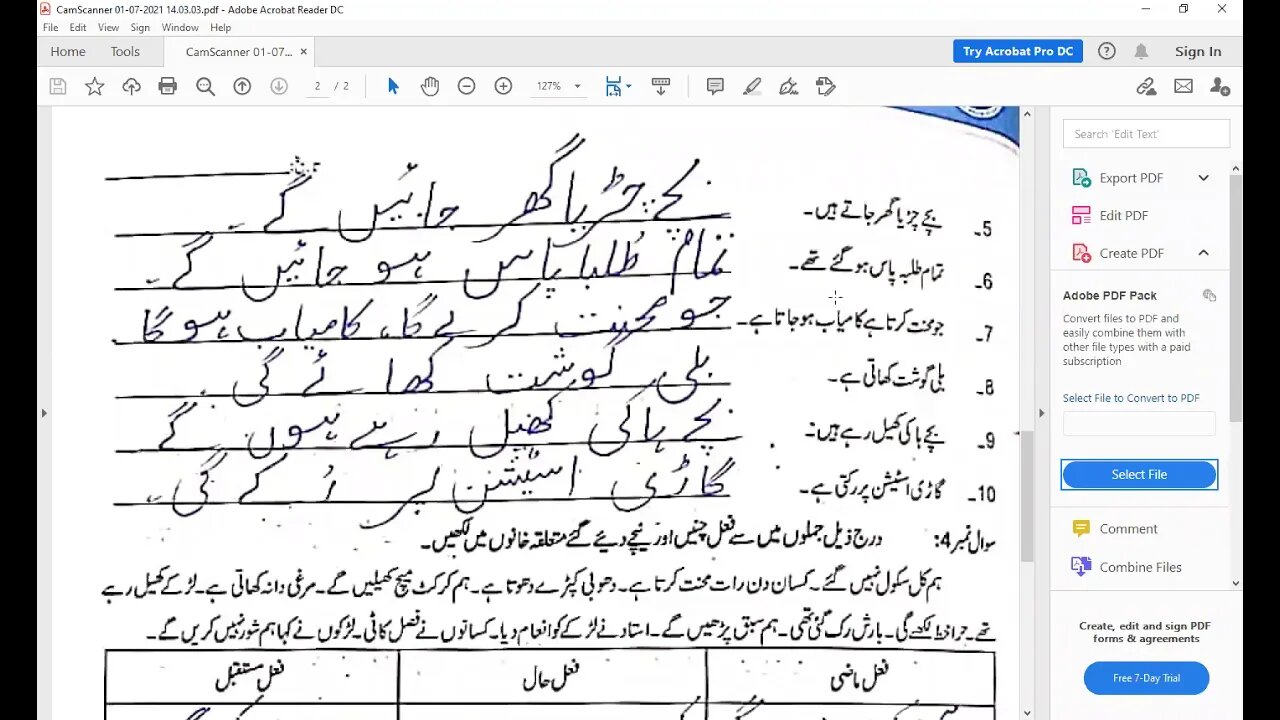 CamScanner 01-07-2021 14.03.03.pdf - Adobe Acrobat Reader DC
File Edit View Sign Window Help
Home Tools CamScanner 01-07... × Try Acrobat Pro DC Sign In
2 / 2 127%
Search 'Edit Text'
Export PDF
Edit PDF
Create PDF
Adobe PDF Pack
Convert files to PDF and
easily combine them with
other file types with a paid
subscription
Select File to Convert to PDF
Select File
Comment
Combine Files
Create, edit and sign PDF
forms & agreements
Free 7-Day Trial
5۔ بچے چڑیا گھر جاتے ہیں۔ بچے چڑیا گھر جائیں گے۔
6۔ تمام طلبہ پاس ہو گئے تھے۔ تمام طُلبا پاس ہو جائیں گے۔
7۔ جو محنت کرتا ہے کامیاب ہو جاتا ہے۔ جو محنت کرے گا، کامیاب ہو گا
8۔ بلی گوشت کھاتی ہے۔ بلی گوشت کھائے گی۔
9۔ بچے ہاکی کھیل رہے ہیں۔ بچے ہاکی کھیل رہے ہوں گے
10۔ گاڑی اسٹیشن پر رکتی ہے۔ گاڑی اسٹیشن پر رُکے گی۔
سوال نمبر 4: درج ذیل جملوں میں سے فعل چنیں اور نیچے دیئے گئے متعلقہ خانوں میں لکھیں۔
ہم کل سکول نہیں گئے۔ کسان دن رات محنت کرتا ہے۔ دھوبی کپڑے دھوتا ہے۔ ہم کرکٹ میچ کھیلیں گے۔ مرغی دانہ کھاتی ہے۔ لڑکے کھیل رہے
تھے۔ حرا خط لکھے گی۔ بارش رک گئی تھی۔ ہم سبق پڑھیں گے۔ استاد نے لڑکے کو انعام دیا۔ کسانوں نے فصل کاٹی۔ لڑکوں نے کہا ہم شور نہیں کریں گے۔
فعل ماضی فعل حال فعل مستقبل